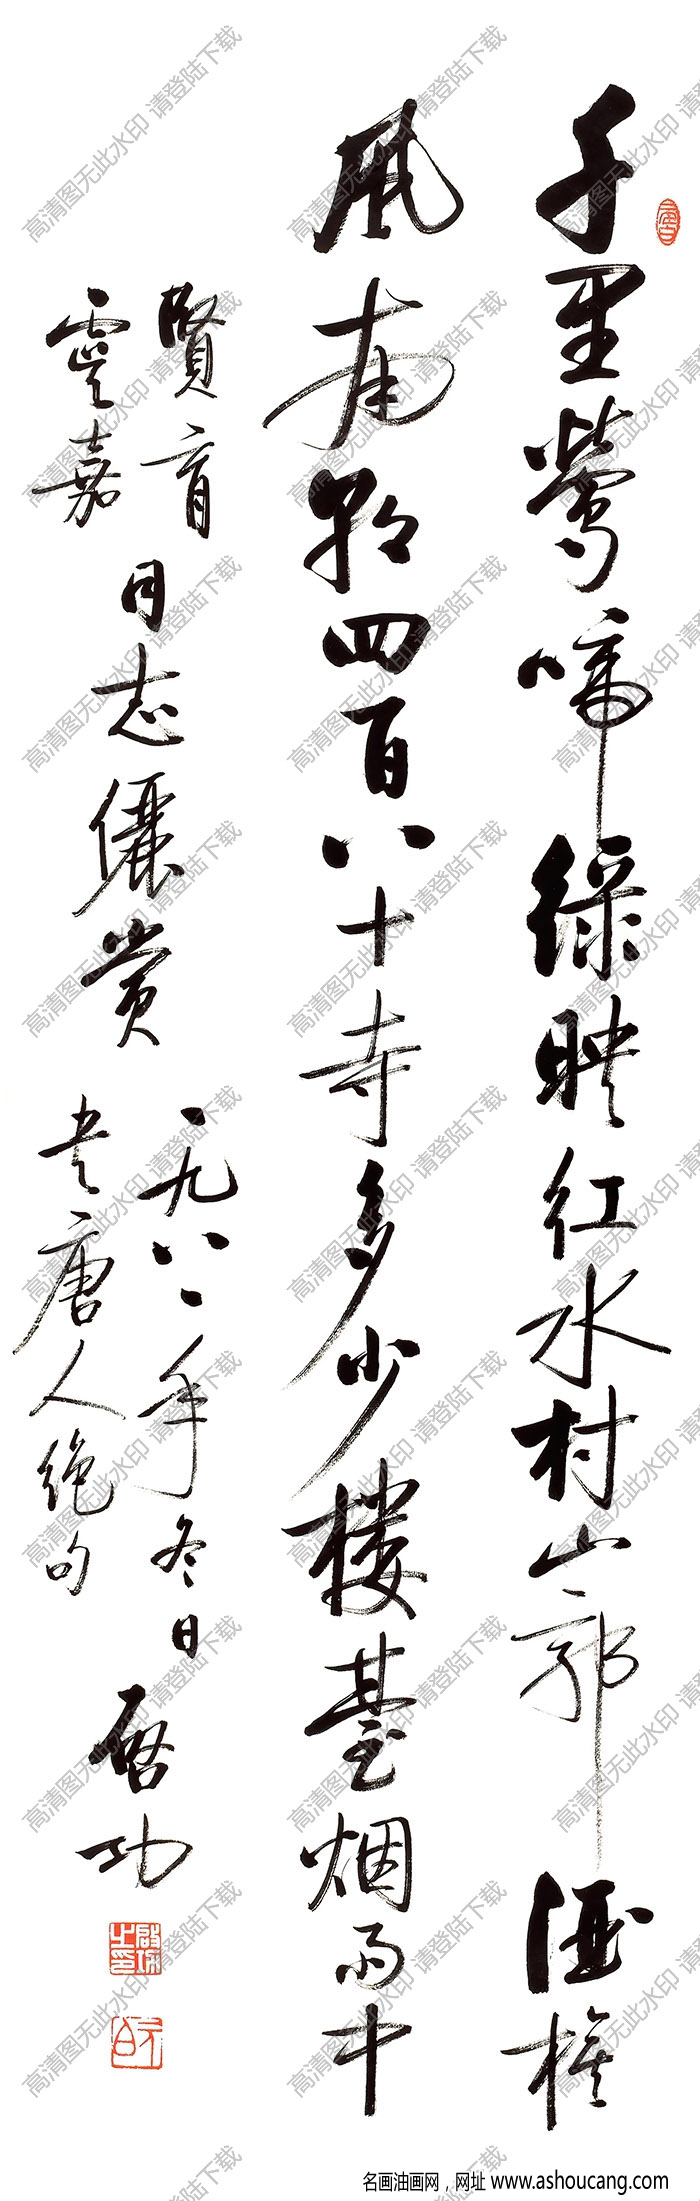 千里莺啼绿映红水村山郭酒旗
風南朝四百八十寺多少楼臺烟雨中
賢育
雯嘉
同志儷赏
一九八一年冬日
书唐人绝句
启功
启功之印
名画油画网，网址 www.ashoucang.com
高清图无此水印 请登陆下载